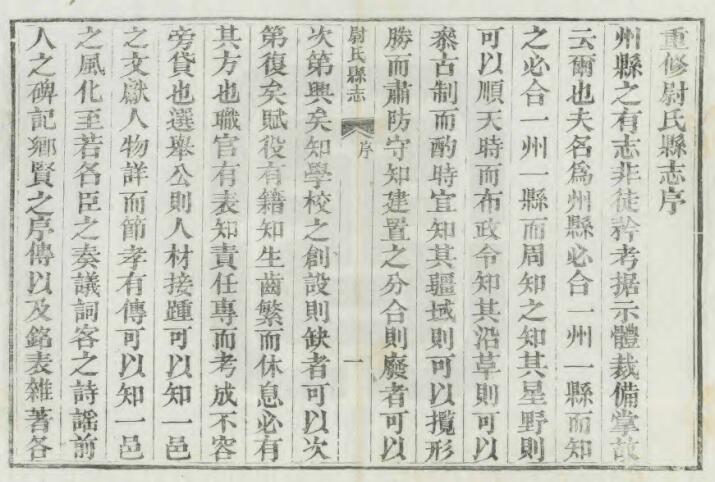 重修尉氏縣志序
州縣之有志非徒矜考据示體裁備掌故
云爾也夫名爲州縣必合一州一縣而知
之必合一州一縣而周知之知其星野則
可以順天時而布政令知其沿革則可以
叅古制而酌時宜知其疆域則可以攬形
勝而肅防守知建置之分合則廢者可以
尉氏縣志 序 一
次第興矣知學校之創設則缺者可以次
第復矣賦役有籍知生齒繁而休息必有
其方也職官有表知責任專而考成不容
旁貸也選舉公則人材接踵可以知一邑
之文獻人物詳而節孝有傳可以知一邑
之風化至若名臣之奏議詞客之詩謠前
人之碑記鄉賢之序傳以及銘表雜著各